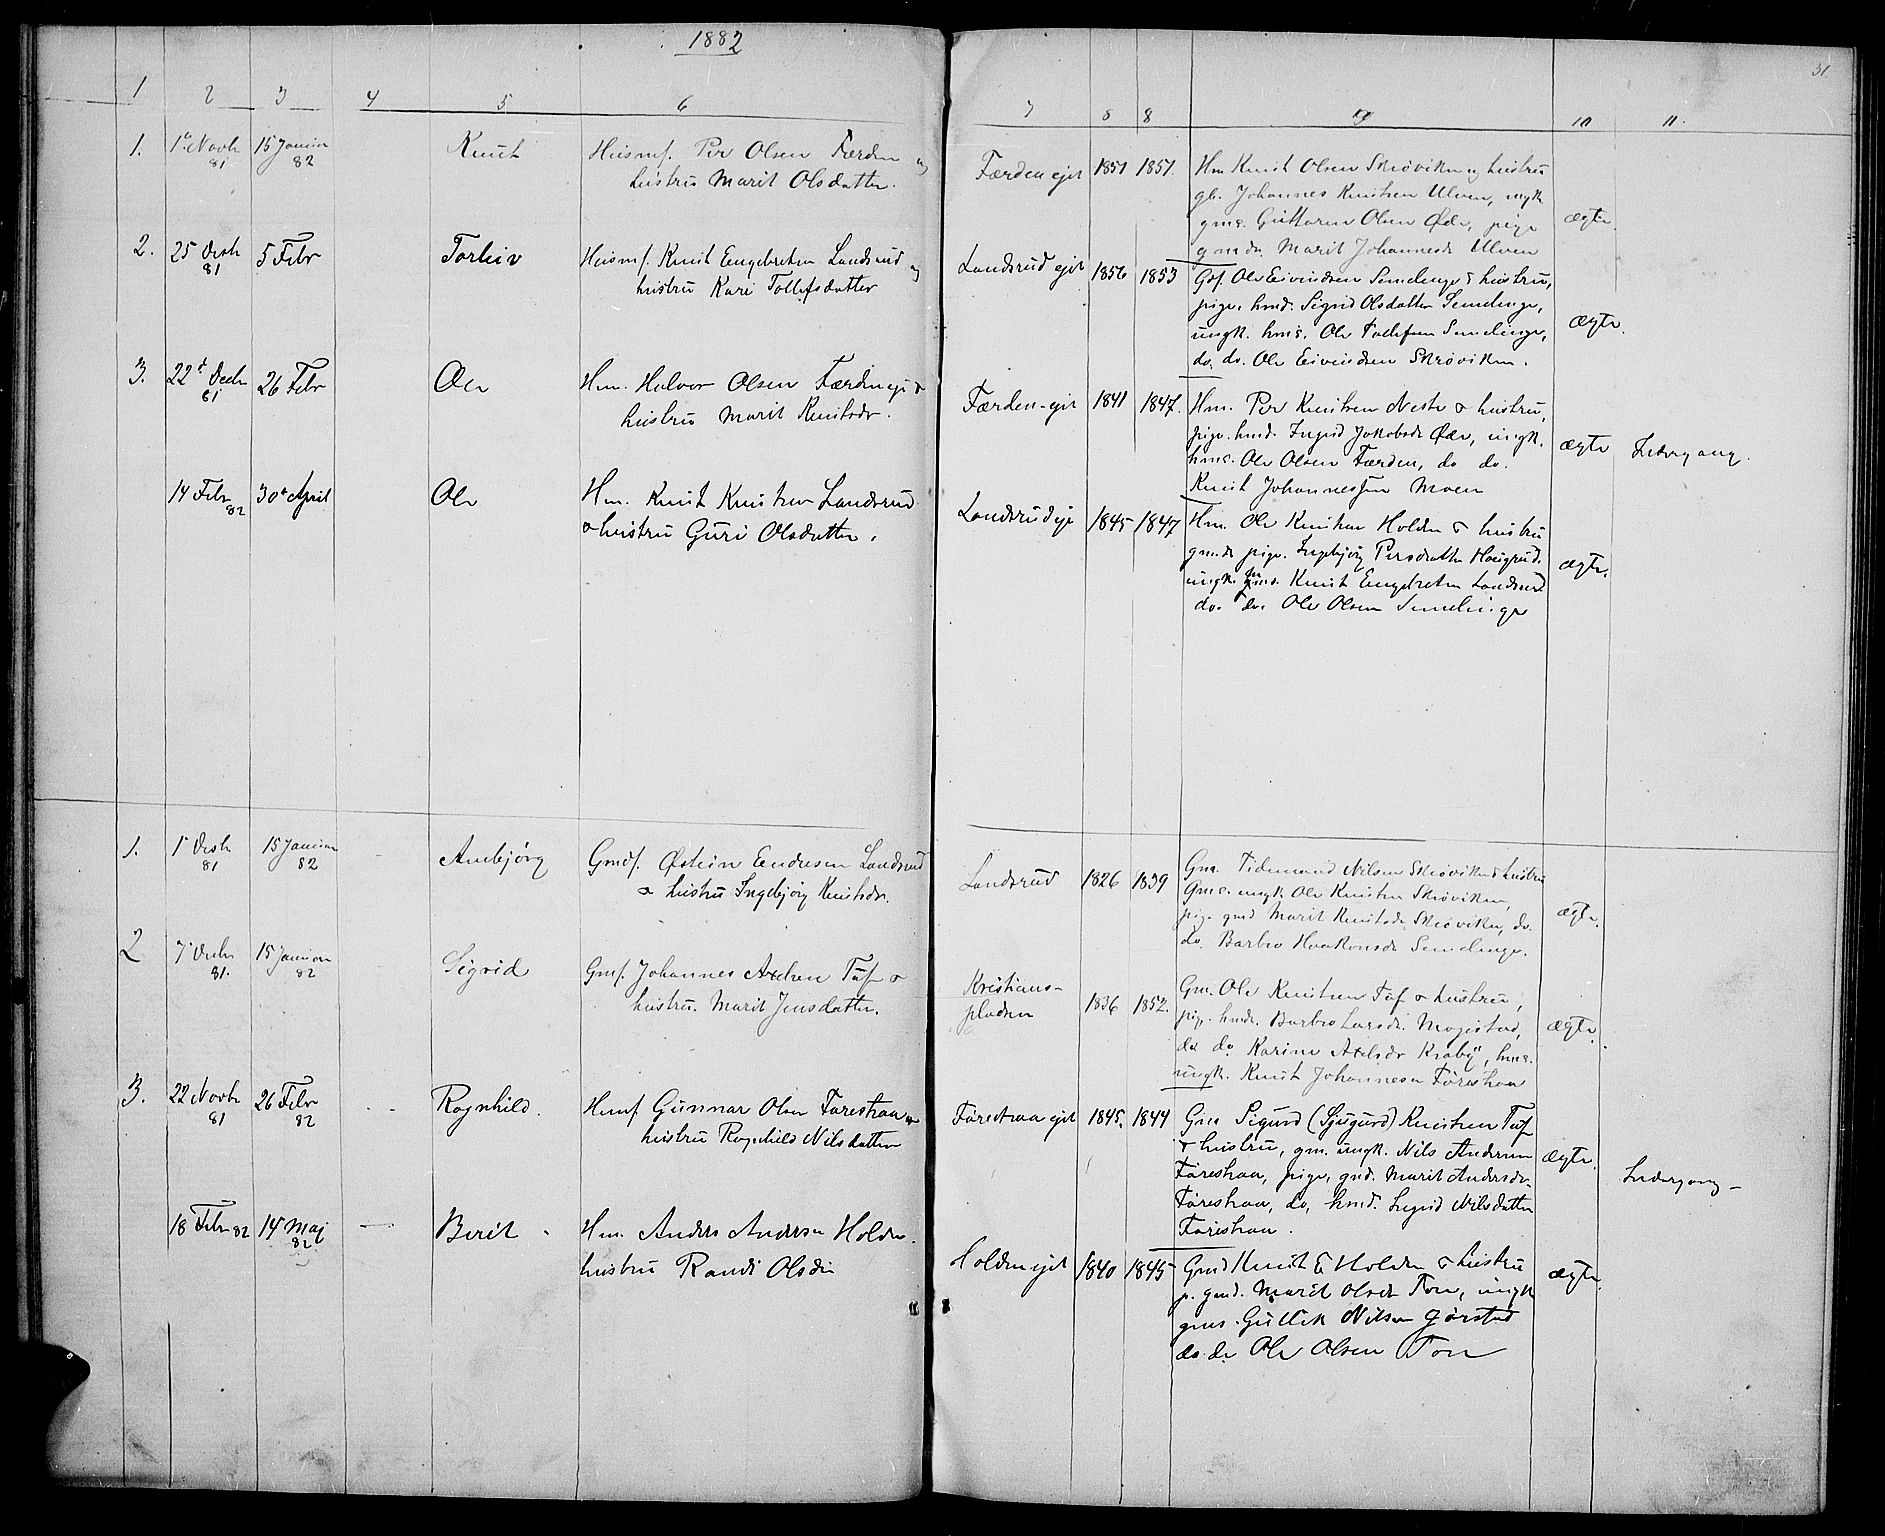 1882
31
1 2 3 4 5 6
7 8 8 9 10 11.
1. 1. Novb 81 15 Januar 82 Knut Husmf. Per Olsen Færden og
hustru Marit Olsdatter.
Færdenejet 1851 1851. Hm Knut Olsen Skrøviken og hustru
gb. Johannes Knutsen Ulven, ungk
gms. Guttorm Olsen Øde, pige
gmdr. Marit Johannesdr Ulven
ægte.
2. 25 Decb 81 5 Febr Torleiv Husmf. Knut Engebretsen Landsrud og
hustru Kari Tollefsdatter
Landsrudejet 1856 1853 Gbf. Ole Eivindsen Semelenge & hustru,
pige. hmd. Sigrid Olsdatter Semelenge,
ungk. hms. Ole Tollefsen Semelenge,
do. do. Ole Eivindsen Skrøviken.
ægte.
3. 22d Decb 81 26 Febr Ole Hm. Halvor Olsen Færdenejet &
hustru Marit Knutsdr.
Færden-ejet 1841 1847. Hm. Per Knutsen Neste & hustru,
pige. hmd. Ingrid Jakobsdr Øde, ungk.
hms. Ole Olsen Færden, do do.
Knut Johannessen Moen
ægte Ledergang.
14 Febr 82 30d April Ole Hm. Knut Knutsen Landsrud
& hustru Guri Olsdatter.
Landsrudeje 1845 1847 Hm. Ole Knutsen Holden & hustru
gmdr pige. Ingebjørg Persdatter Haugrud.
ungk. hms. Knut Engebretsen Landsrud
do. do. Ole Olsen Semelenge
ægte.
1. 1 Decb 81 15 Januar 82 Anbjørg Gmdf. Østein Endresen Landsrud
& hustru Ingebjørg Knutsdr.
Landsrud 1826 1839 Gm. Tidemand Nilsen Skrøviken & hustru
Gms. ungk Ole Knutsen Skrøviken,
pige gmd Marit Knutsdr Skrøviken, do.
do. Barbro Haakonsdr Semelenge.
ægte.
2 7 Decbr 81. 15 Januar 82 Sigrid Gmf. Johannes Axelsen Tuf &
hustru. Marit Jensdatter.
Kristians-
pladsen 1836 1852. Gm. Ole Knutsen Tuf & hustru,
pige. hmdr. Barbro Larsdr. Magistad,
do do Karine Axelsdr Kraby, hms.
ungk. Knut Johannesen Føreshaa
ægte.
3. 22 Novb 81 26 Febr 82 Ragnhild. Husmf. Gunnar Olsen Føreshaa &
hustru Ragnhild Nilsdatter
Føreshaaejet 1845. 1844 Gm Sigurd (Sjugurd) Knutsen Tuf
& hustru, gm. ungk. Nils Andersen
Føreshaa, pige, gmd. Marit Andersdr
Føreshaa, do, hmd. Ingrid Nilsdatter
Føreshaa.
ægte. Ledergang
18 Febr 82 14 Maj 82 Berit Hm. Anders Andersen Holden.
hustru Randi Olsdr
Holdenejet 1840 1845 Gmd Knut E Holden & hustru
p. gmd. Marit Olsdr Ton, ungk
gms. Gullik Nilsen Gjørstad
do. do Ole Olsen Ton
ægte.